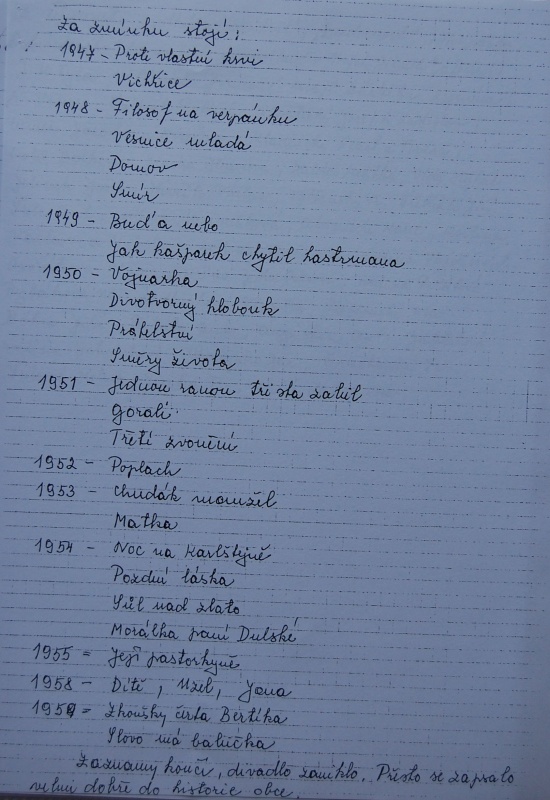 Za zmínku stojí:
1947 - Proti vlastní krvi
Vichřice
1948 - Filosof na verpánku
Vesnice mladá
Domov
Smír
1949 - Buď a nebo
Jak kašparek chytil hastrmana
1950 - Vojnarka
Divotvorný klobouk
Přátelství
Směry života
1951 - Jednou ranou tři sta zabil
Gorali
Třetí zvonění
1952 - Poplach
1953 - Chudák manžel
Matka
1954 - Noc na Karlštejně
Pozdní láska
Sůl nad zlato
Morálka paní Dulské
1955 = Její pastorkyně
1958 - Dítě, Uzel, Jana
1959 = Zkoušky čerta Bertíka
Slovo má babička
Záznamy končí, divadlo zaniklo. Přesto se zapsalo
velmi dobře do historie obce.